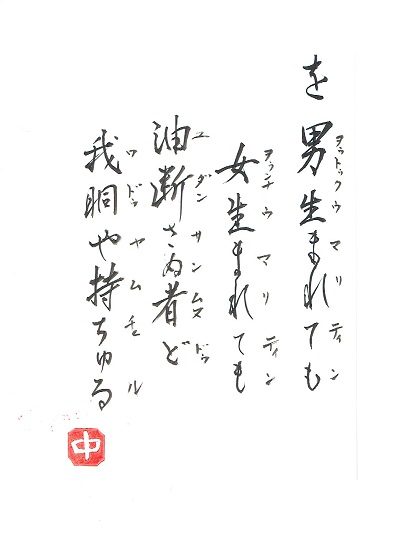 を 男生まれても
ヲゥトゥクウマリティン
女生まれても
ウマリティン
油断さぬ者ど
ユダンサンムヌドゥ
我胴や持ちゆる
ワドゥヤムチュル
中